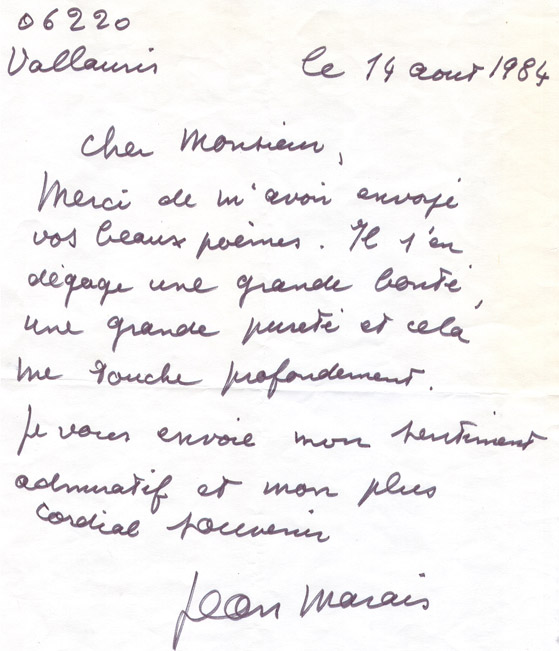 06220
Vallauris
le 14 aout 1984
Cher Monsieur,
Merci de m'avoir envoyé
vos beaux poèmes. Il s'en
dégage une grande bonté,
une grande pureté et cela
me touche profondement.
Je vous envoie mon sentiment
admiratif et mon plus
cordial souvenir
Jean Marais